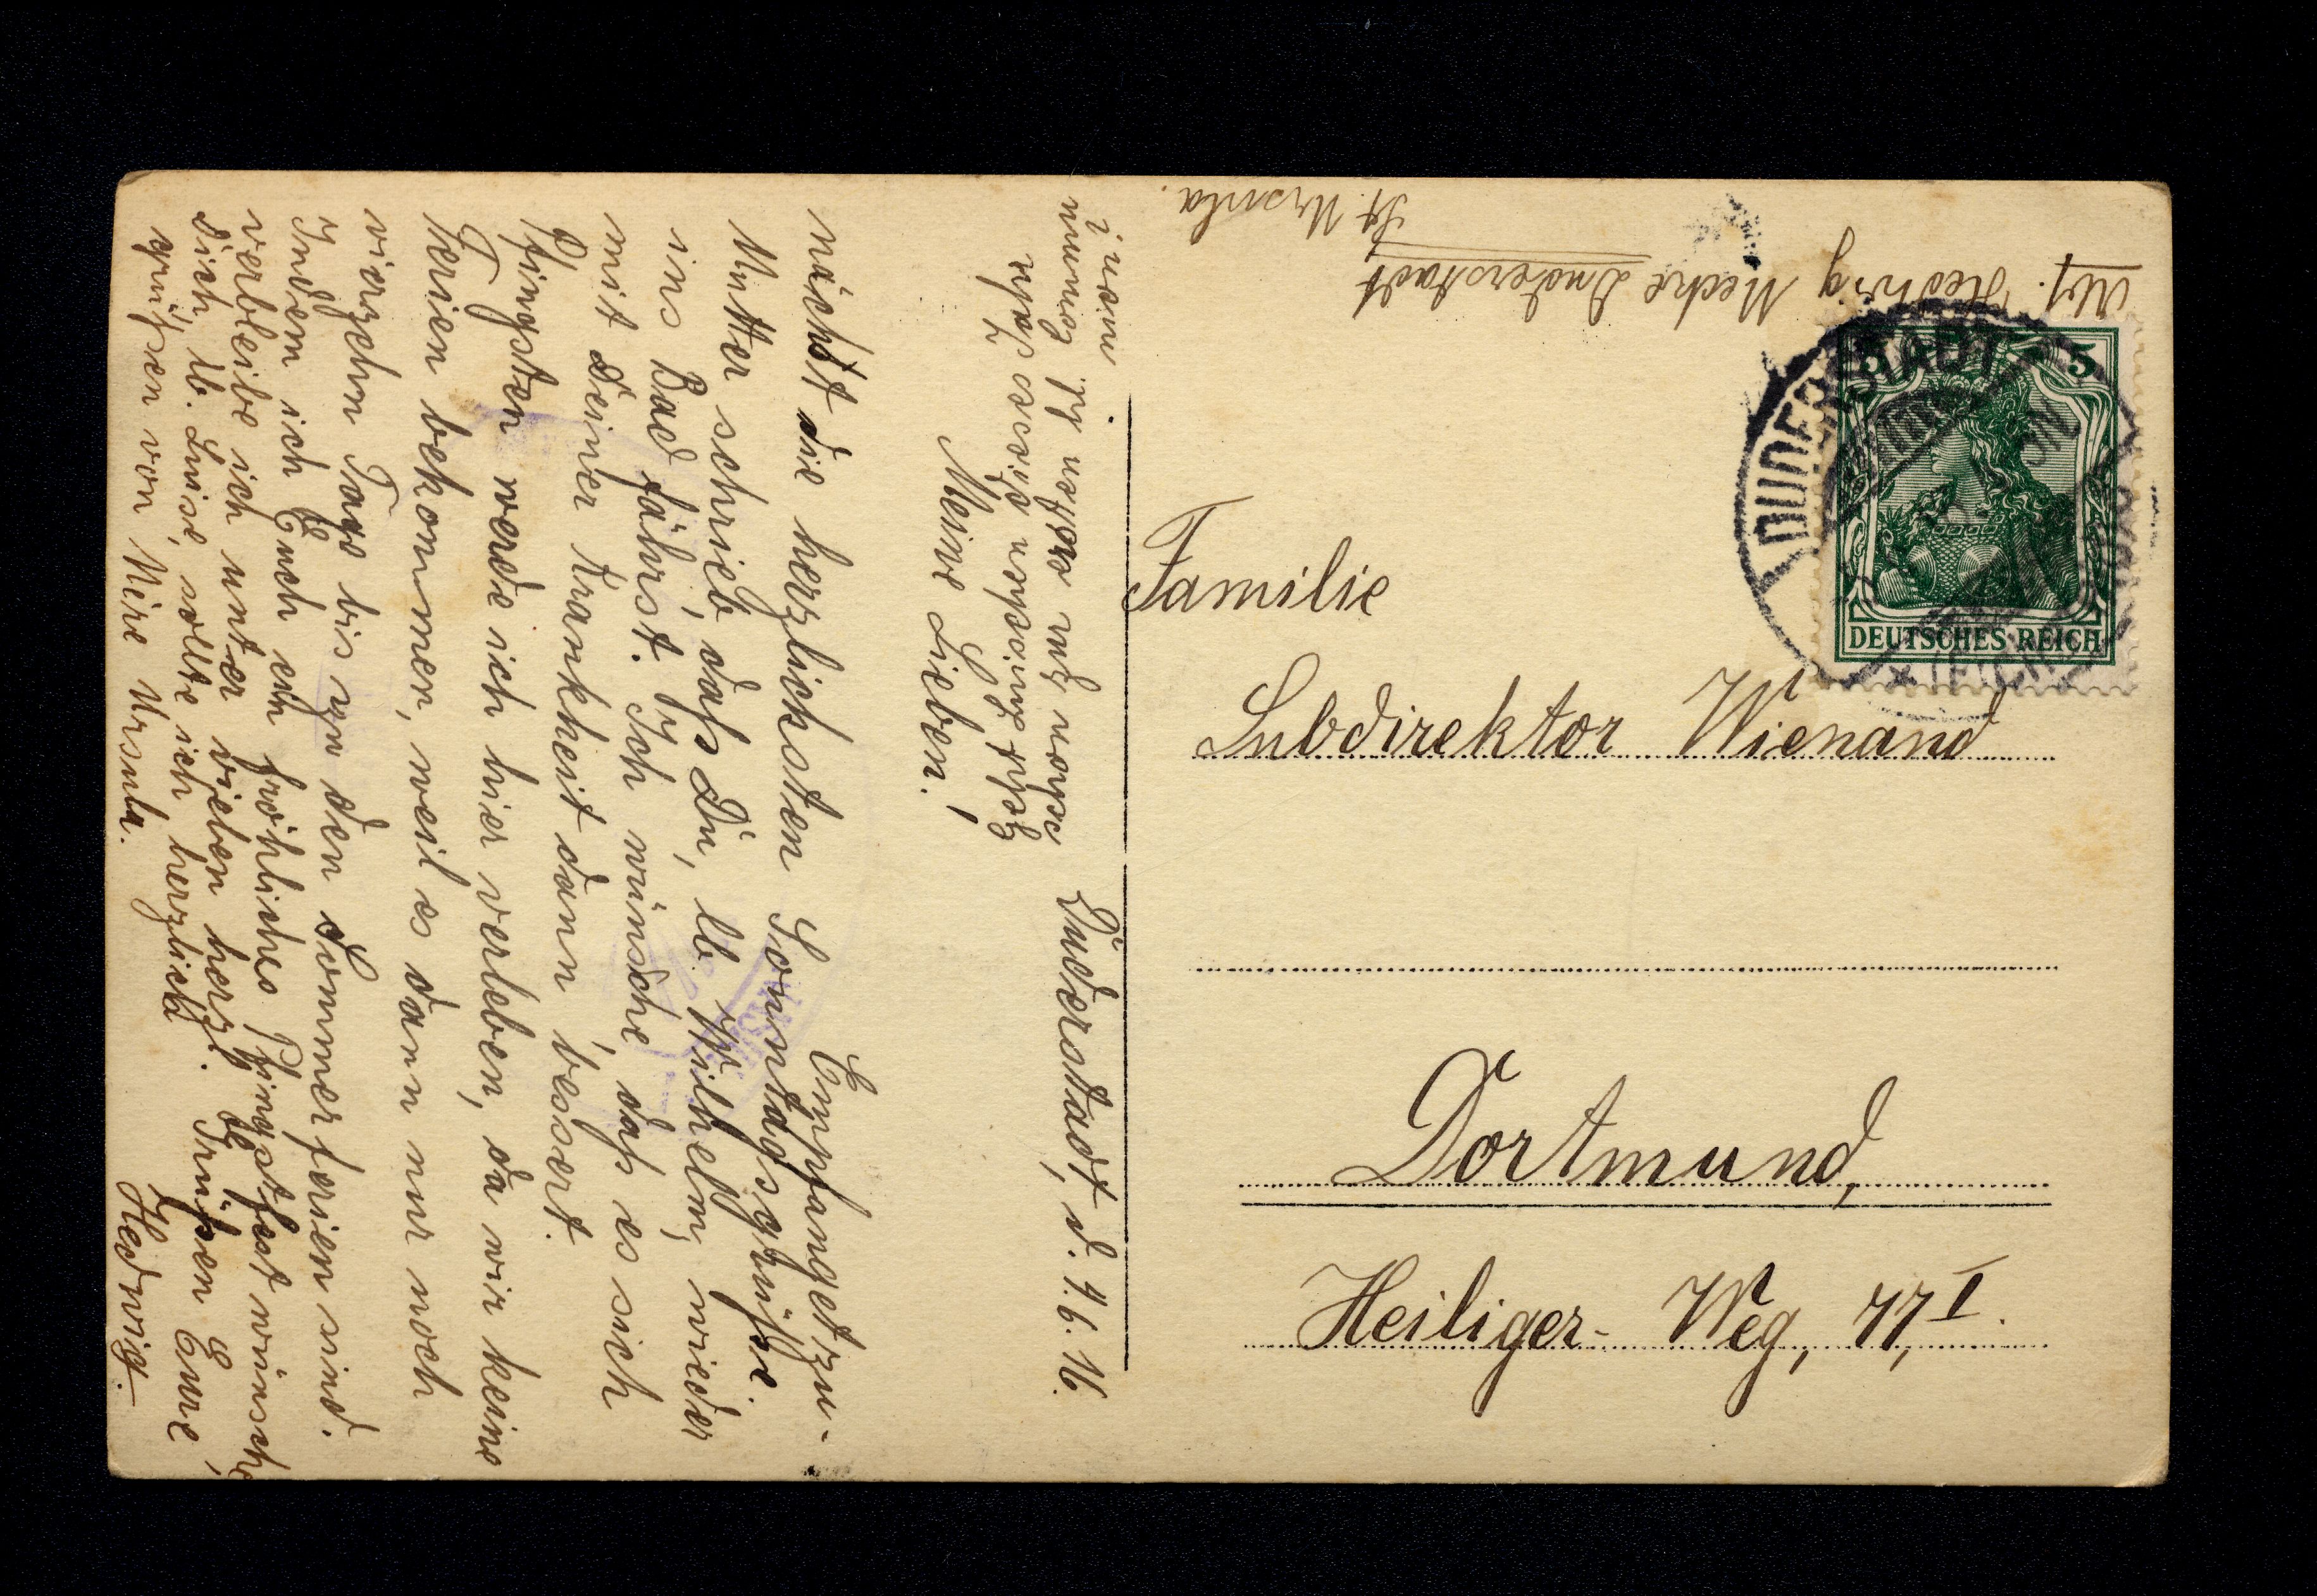 Abs. Hedwig Mecke Duderstadt
St. Ursula.
DUDERSTADT
5
DEUTSCHES REICH
Familie
Subdirektor Wienand
Dortmund,
Heiliger-Weg, 77, I.
Duderstadt, d. 4. 6. 16.
Meine Lieben!
Empfanget zu-
nächst die herzlichsten Sonntagsgrüße.
Mutter schrieb, daß Du, lb. Wilhelm, wieder
ins Bad fährst. Ich wünsche, daß es sich
mit Deiner Krankheit dann bessert.
Pfingsten werde ich hier verleben, da wir keine
Ferien bekommen, weil es dann nur noch
vierzehn Tage bis zu den Sommerferien sind.
Indem ich Euch ein fröhliches Pfingstfest wünsche,
verbleibe ich unter vielen herzl. Grüßen Eure
Hedwig.
Dich, lb. Luise, sollte ich herzlich
grüßen von Mère Ursula.